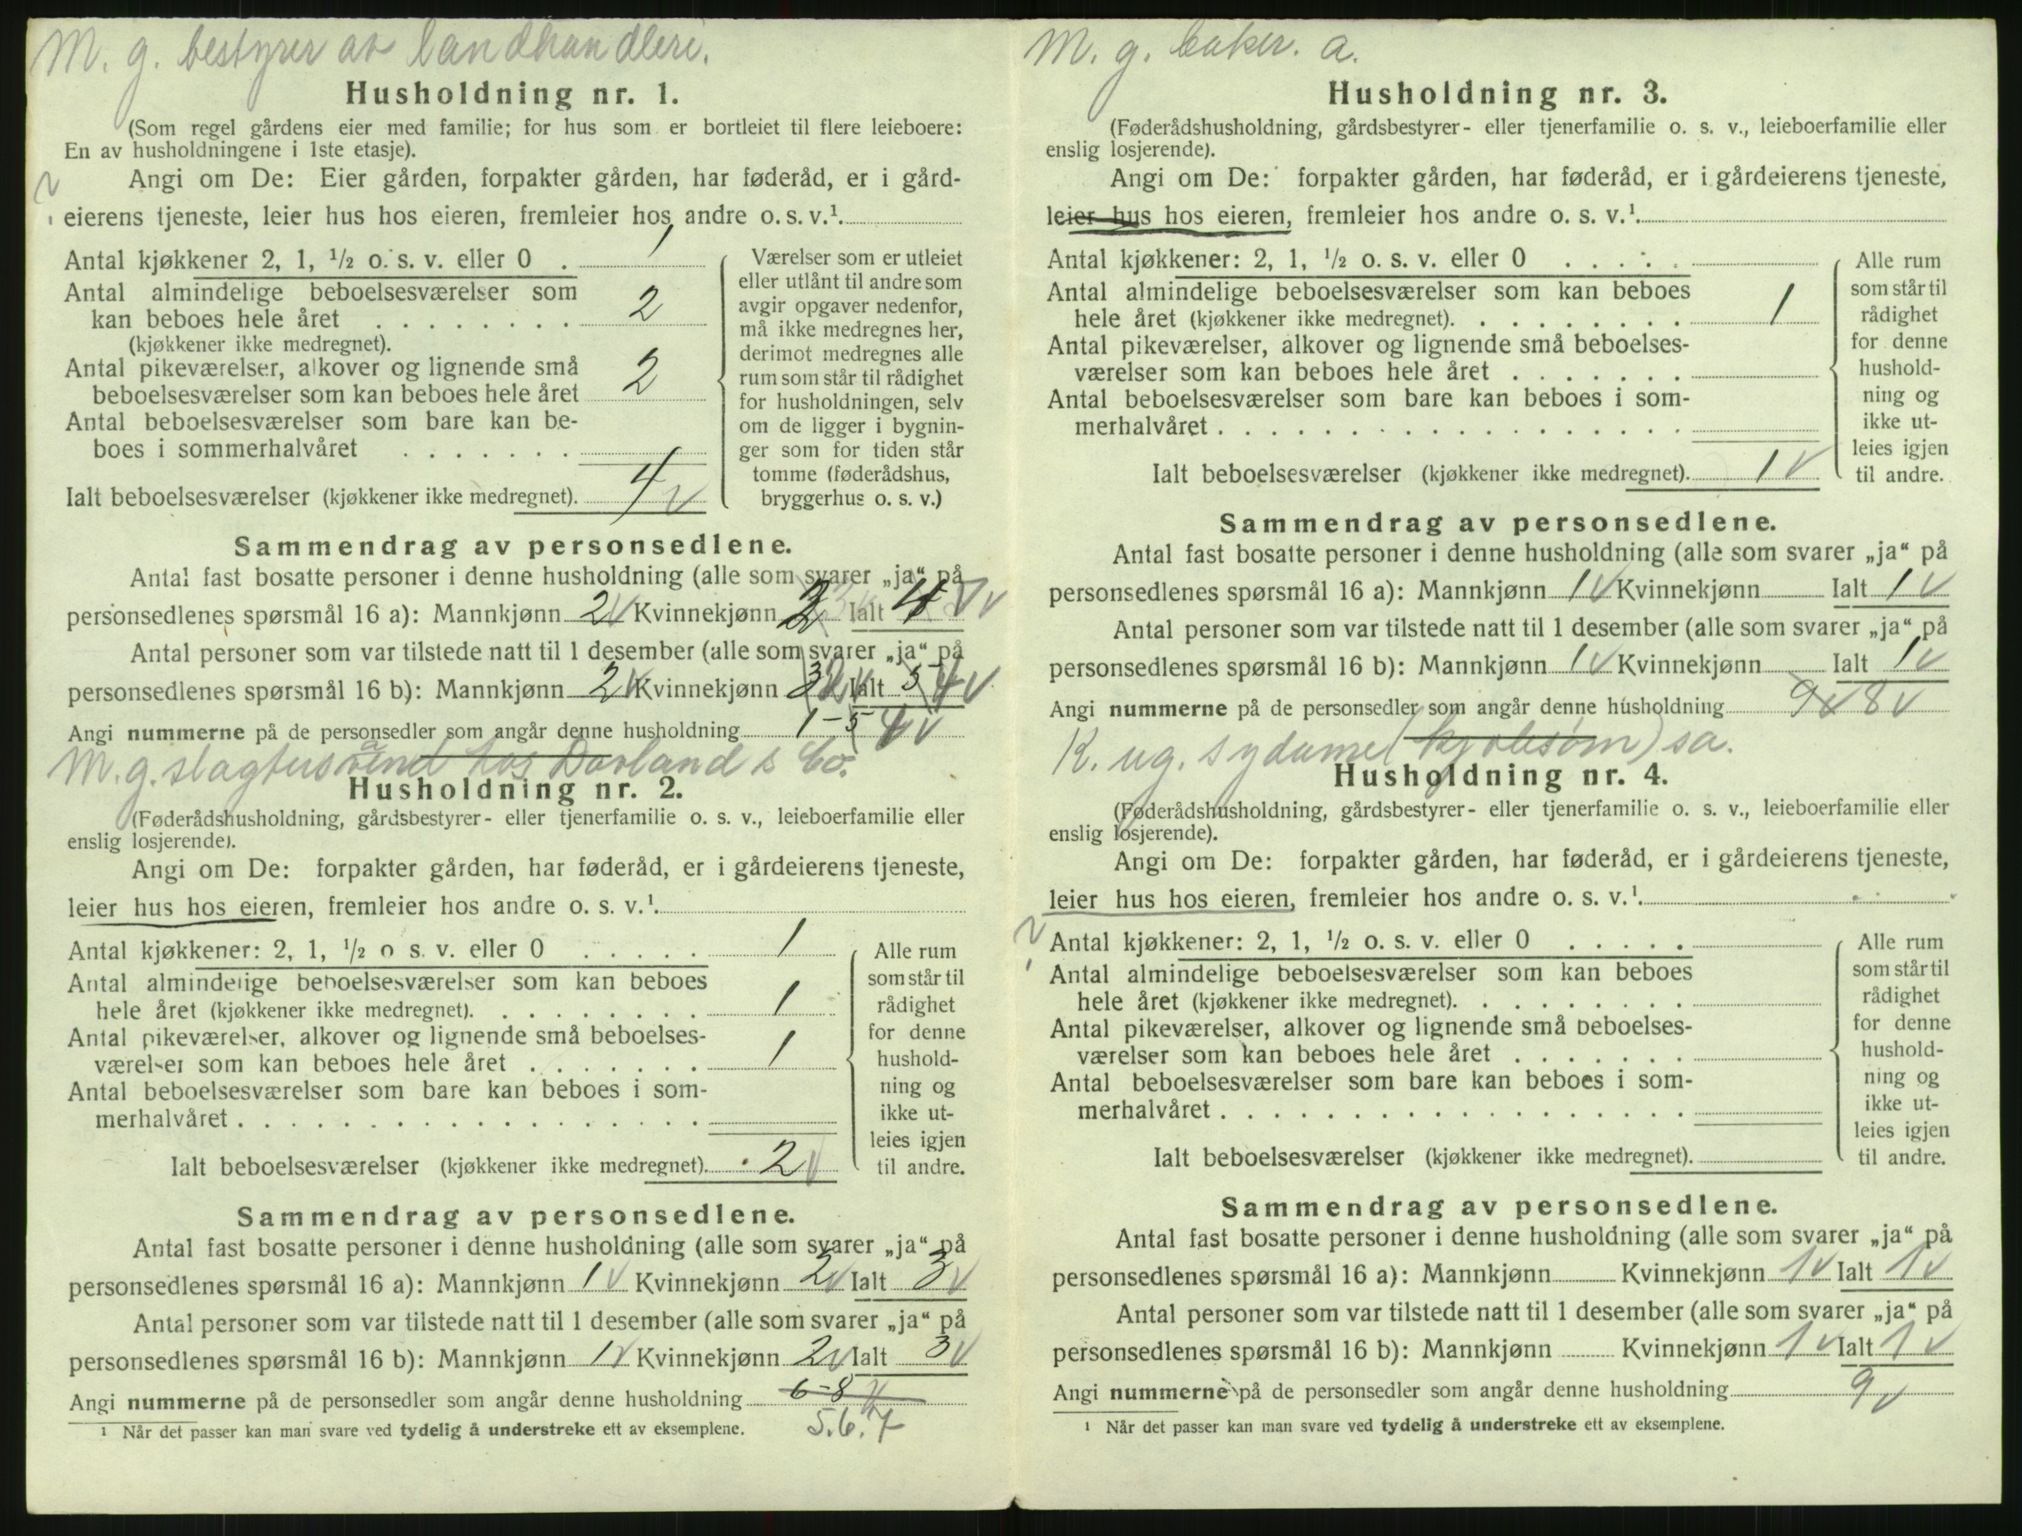 M. g. bestyrer av landhandleri.
Husholdning nr. 1.
(Som regel gårdens eier med familie; for hus som er bortleiet til flere leieboere:
En av husholdningene i 1ste etasje).
Angi om De: Eier gården, forpakter gården, har føderåd, er i gård-
eierens tjeneste, leier hus hos eieren, fremleier hos andre o. s. v.¹.
Antal kjøkkener 2, 1, ½ o. s. v. eller 0 . 1
Antal almindelige beboelsesværelser som
kan beboes hele året . . . . . . . . 2
(kjøkkener ikke medregnet).
Antal pikeværelser, alkover og lignende små
beboelsesværelser som kan beboes hele året 2
Antal beboelsesværelser som bare kan be-
boes i sommerhalvåret . . . . . . .
Ialt beboelsesværelser (kjøkkener ikke medregnet). 4 v
Værelser som er utleiet
eller utlånt til andre som
avgir opgaver nedenfor,
må ikke medregnes her,
derimot medregnes alle
rum som står til rådighet
for husholdningen, selv
om de ligger i bygnin-
ger som for tiden står
tomme (føderådshus,
bryggerhus o. s. v.)
Sammendrag av personsedlene.
Antal fast bosatte personer i denne husholdning (alle som svarer „ja“ på
personsedlenes spørsmål 16 a): Mannkjønn 2 v Kvinnekjønn 2 Ialt 4 v
Antal personer som var tilstede natt til 1 desember (alle som svarer „ja“ på
personsedlenes spørsmål 16 b): Mannkjønn 2 v Kvinnekjønn 3 2 v Ialt 5 4 v
Angi nummerne på de personsedler som angår denne husholdning 1-5 4 v
M. g. slagtersvend hos Dovland & Co.
Husholdning nr. 2.
(Føderådshusholdning, gårdsbestyrer- eller tjenerfamilie o. s. v., leieboerfamilie eller
enslig losjerende).
Angi om De: forpakter gården, har føderåd, er i gårdeierens tjeneste,
leier hus hos eieren, fremleier hos andre o. s. v.¹.
Antal kjøkkener: 2, 1, ½ o s. v. eller 0 . . . . . 1
Antal almindelige beboelsesværelser som kan beboes
hele året (kjøkkener ikke medregnet). . . . . . . . . 1
Antal pikeværelser, alkover og lignende små beboelses-
værelser som kan beboes hele året . . . . . . . 1
Antal beboelsesværelser som bare kan beboes i som-
merhalvåret . . . . . . . . . . . . . . . . . .
Ialt beboelsesværelser (kjøkkener ikke medregnet). 2 v
Alle rum
som står til
rådighet
for denne
hushold-
ning og
ikke ut-
leies igjen
til andre.
Sammendrag av personsedlene.
Antal fast bosatte personer i denne husholdning (alle som svarer „ja“ på
personsedlenes spørsmål 16 a): Mannkjønn 1 v Kvinnekjønn 2 v Ialt 3 v
Antal personer som var tilstede natt til 1 desember (alle som svarer „ja“ på
personsedlenes spørsmål 16 b): Mannkjønn 1 v Kvinnekjønn 2 v Ialt 3 v
Angi nummerne på de personsedler som angår denne husholdning 6-8
5.6.7
¹ Når det passer kan man svare ved tydelig å understreke ett av eksemplene.
M. g. baker. a.
Husholdning nr. 3.
(Føderådshusholdning, gårdsbestyrer- eller tjenerfamilie o. s. v., leieboerfamilie eller
enslig losjerende).
Angi om De: forpakter gården, har føderåd, er i gårdeierens tjeneste,
leier hus hos eieren, fremleier hos andre o. s. v.¹.
Antal kjøkkener: 2, 1, ½ o. s. v. eller 0 . . . . .
Antal almindelige beboelsesværelser som kan beboes
hele året (kjøkkener ikke medregnet). . . . . . . . . 1
Antal pikeværelser, alkover og lignende små beboelses-
værelser som kan beboes hele året . . . . . . .
Antal beboelsesværelser som bare kan beboes i som-
merhalvåret . . . . . . . . . . . . . . . . . .
Ialt beboelsesværelser (kjøkkener ikke medregnet). 1 v
Alle rum
som står til
rådighet
for denne
hushold-
ning og
ikke ut-
leies igjen
til andre.
Sammendrag av personsedlene.
Antal fast bosatte personer i denne husholdning (alle som svarer „ja“ på
personsedlenes spørsmål 16 a): Mannkjønn 1 v Kvinnekjønn Ialt 1 v
Antal personer som var tilstede natt til 1 desember (alle som svarer „ja“ på
personsedlenes spørsmål 16 b): Mannkjønn 1 v Kvinnekjønn Ialt 1 v
Angi nummerne på de personsedler som angår denne husholdning 9 v 8 v
K. ug. sydame (kjolesøm) sa.
Husholdning nr. 4.
(Føderådshusholdning, gårdsbestyrer- eller tjenerfamilie o. s. v., leieboerfamilie eller
enslig losjerende).
Angi om De: forpakter gården, har føderåd, er i gårdeierens tjeneste,
leier hus hos eieren, fremleier hos andre o. s. v.¹.
Antal kjøkkener: 2, 1, ½ o. s. v. eller 0 . . . . .
Antal almindelige beboelsesværelser som kan beboes
hele året (kjøkkener ikke medregnet). . . . . . . . .
Antal pikeværelser, alkover og lignende små beboelses-
værelser som kan beboes hele året . . . . . . .
Antal beboelsesværelser som bare kan beboes i som-
merhalvåret . . . . . . . . . . . . . . . . . .
Ialt beboelsesværelser (kjøkkener ikke medregnet).
Alle rum
som står til
rådighet
for denne
hushold-
ning og
ikke ut-
leies igjen
til andre.
Sammendrag av personsedlene.
Antal fast bosatte personer i denne husholdning (alle som svarer „ja“ på
personsedlenes spørsmål 16 a): Mannkjønn Kvinnekjønn 1 v Ialt 1 v
Antal personer som var tilstede natt til 1 desember (alle som svarer „ja“ på
personsedlenes spørsmål 16 b): Mannkjønn Kvinnekjønn 1 v Ialt 1 v
Angi nummerne på de personsedler som angår denne husholdning 9 v
¹ Når det passer kan man svare ved tydelig å understreke ett av eksemplene.